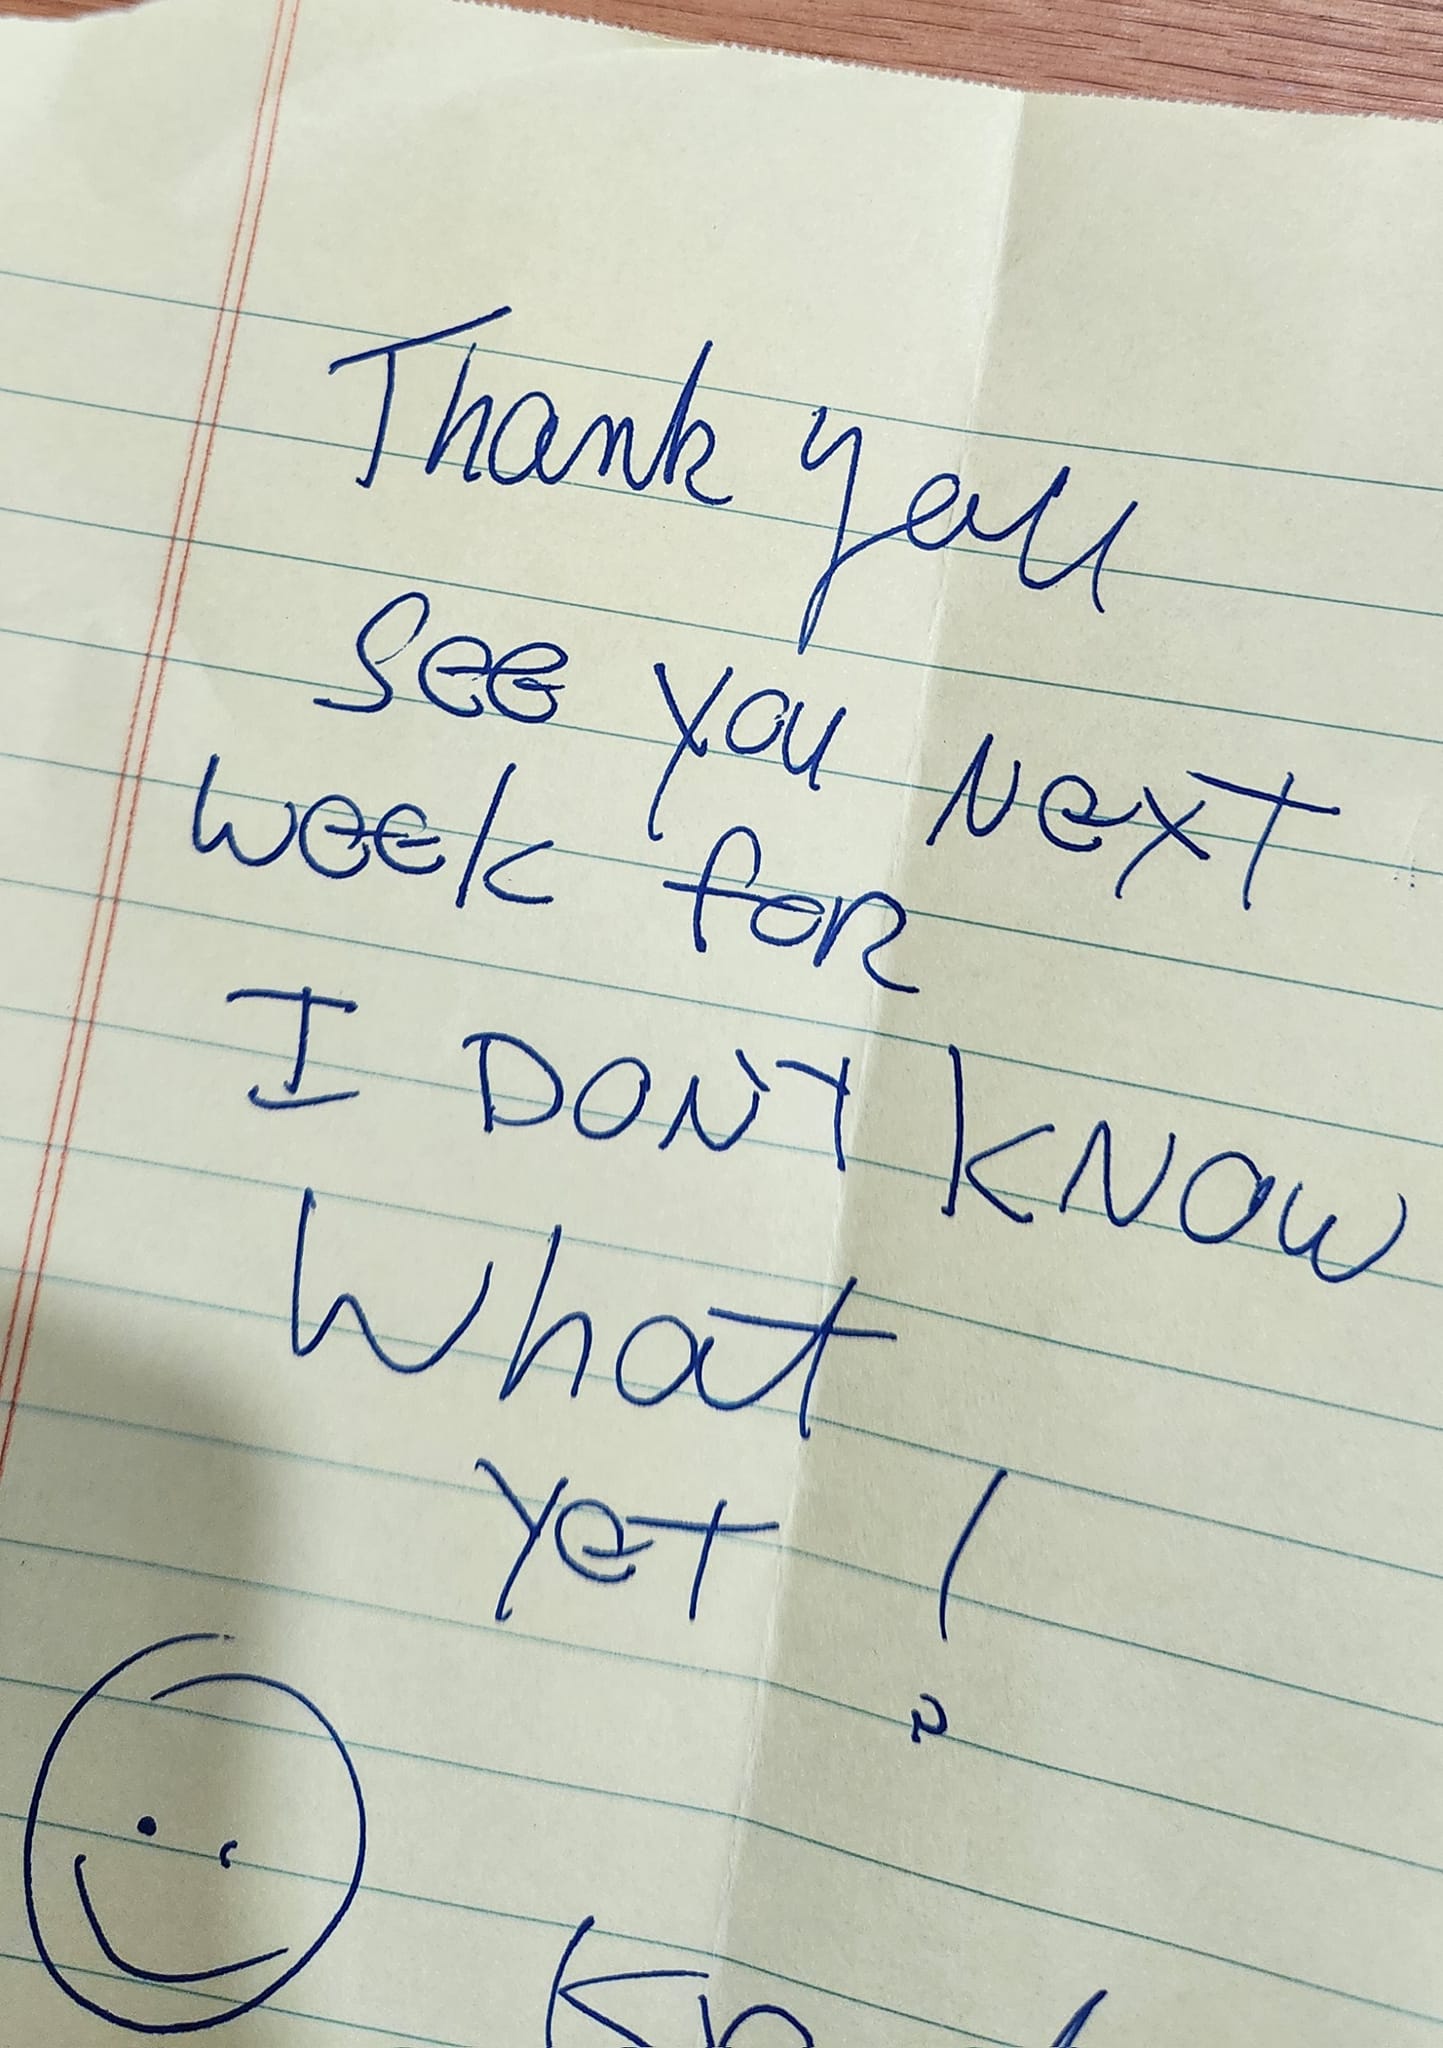 Thank you
See you Next
week for
I DON'T KNOW
What
Yet !